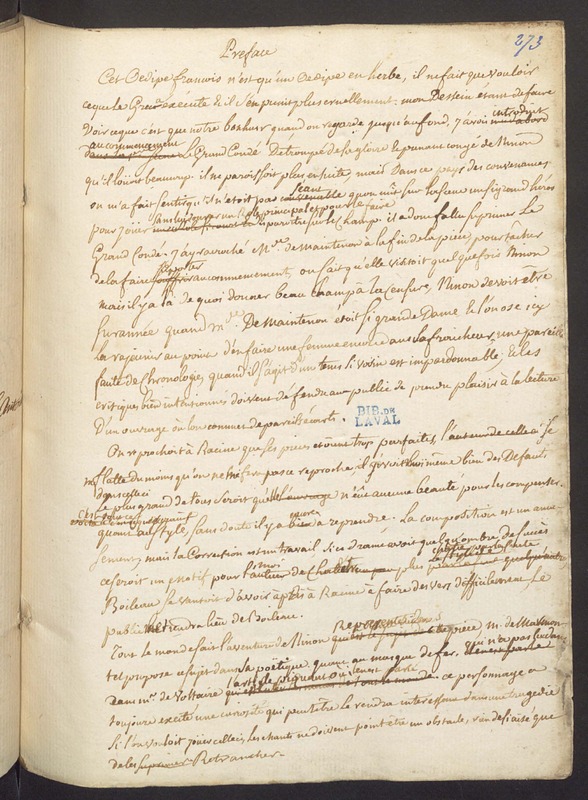 Preface
273
Cet Oedipe francois n'est qu'un Oedipe en herbe, il ne fait que vouloir
ce que le Grec execute & il s'en punit plus cruellement. mon Dessein etant de faire
voir ce que c'est que notre bonheur quand on regarde jusqu'au fond, j'avois introduit
au commencement
le Grand Condé Detrompé de sa gloire & prenant congé de Ninon
qu'il louoit beaucoup. il ne paroissoit plus ensuite mais Dans ce pays des convenances
on m'a fait sentir qu'il n'etoit pas seant qu'on mit sur la scene un si grand heros
pour jouer sans y jouer un Role principal et pour le faire
disparoitre sur le Champ. il a donc fallu suprimer Le
Grand Condé. j'ay raproché Me. de Maintenon à la fin de la piece, pour tacher
de la faire au commencement, on sait qu'elle visitoit quelquefois Ninon
mais il y a là de quoi donner beau champ à la Censure, Ninon devoit être
surannée quand Me. De Maintenon etoit si grande Dame & l'on ose icy
la rajeunir au point d'en faire une femme encore dans sa fraicheur, une pareille
faute de Chronologie, quand il s'agit d'un tems si voisin est impardonnable, & les
critiques bien intentionnés doivent défendre au public de prendre plaisir à la lecture
D'un ouvrage où l'on commet de pareils écarts.
BIB. DE
LAVAL
On reprochoit à Racine que ses pieces etoient trop parfaites, l'auteur de celle ci se
flatte du moins qu'on ne luy fera pas ce reproche, il y voit lui même bien des Defauts
dans celle ci
Le plus grand de tous seroit qu'elle n'eut aucune beauté pour les compenser.
quant au style, sans doute il y a encore à reprendre. La composition est un amu-
sement, mais la Correction est un travail. si ce drame avoit quelqu'ombre de succès
ce seroit un motif pour l'auteur de
Boileau se vantoit d'avoir apris à Racine à faire des vers difficilement. Le
public tiendra lieu de Boileau.
Tout le monde sait l'aventure de Ninon piece, M. de Marmon-
tel propose ce sujet dans sa poëtique, quant au masque de fer,
ce personnage a
toujours excité une curiosité qui peut être le rendra interessant dans une tragedie
Si l'on vouloit jouer celle ci, les chants ne doivent point être un obstacle, rien de si aisé que
de les Retrancher.